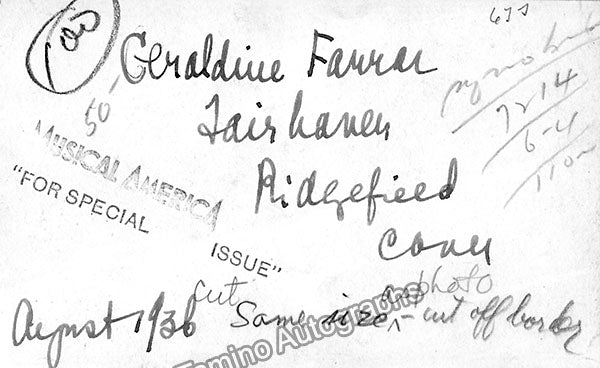 673
100
Geraldine Farrar
50-
Fairhaven
Ridgefield
Conn
MUSICAL AMERICA
"FOR SPECIAL
ISSUE"
7214
6-4
110-
cut
as photo
August 1936 Same size - cut off border
Tamino Autographs